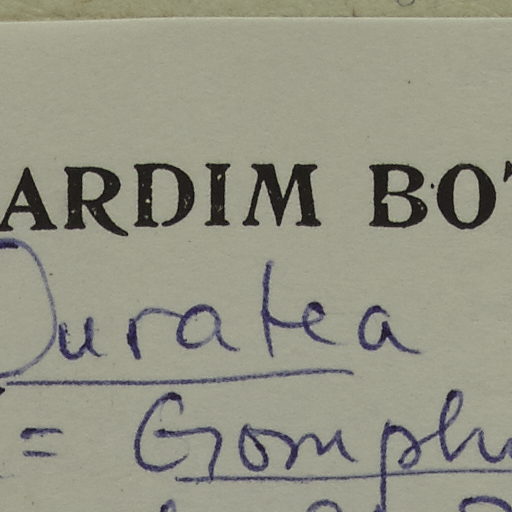 ARDIM BOT
Ouratea
= Gomph